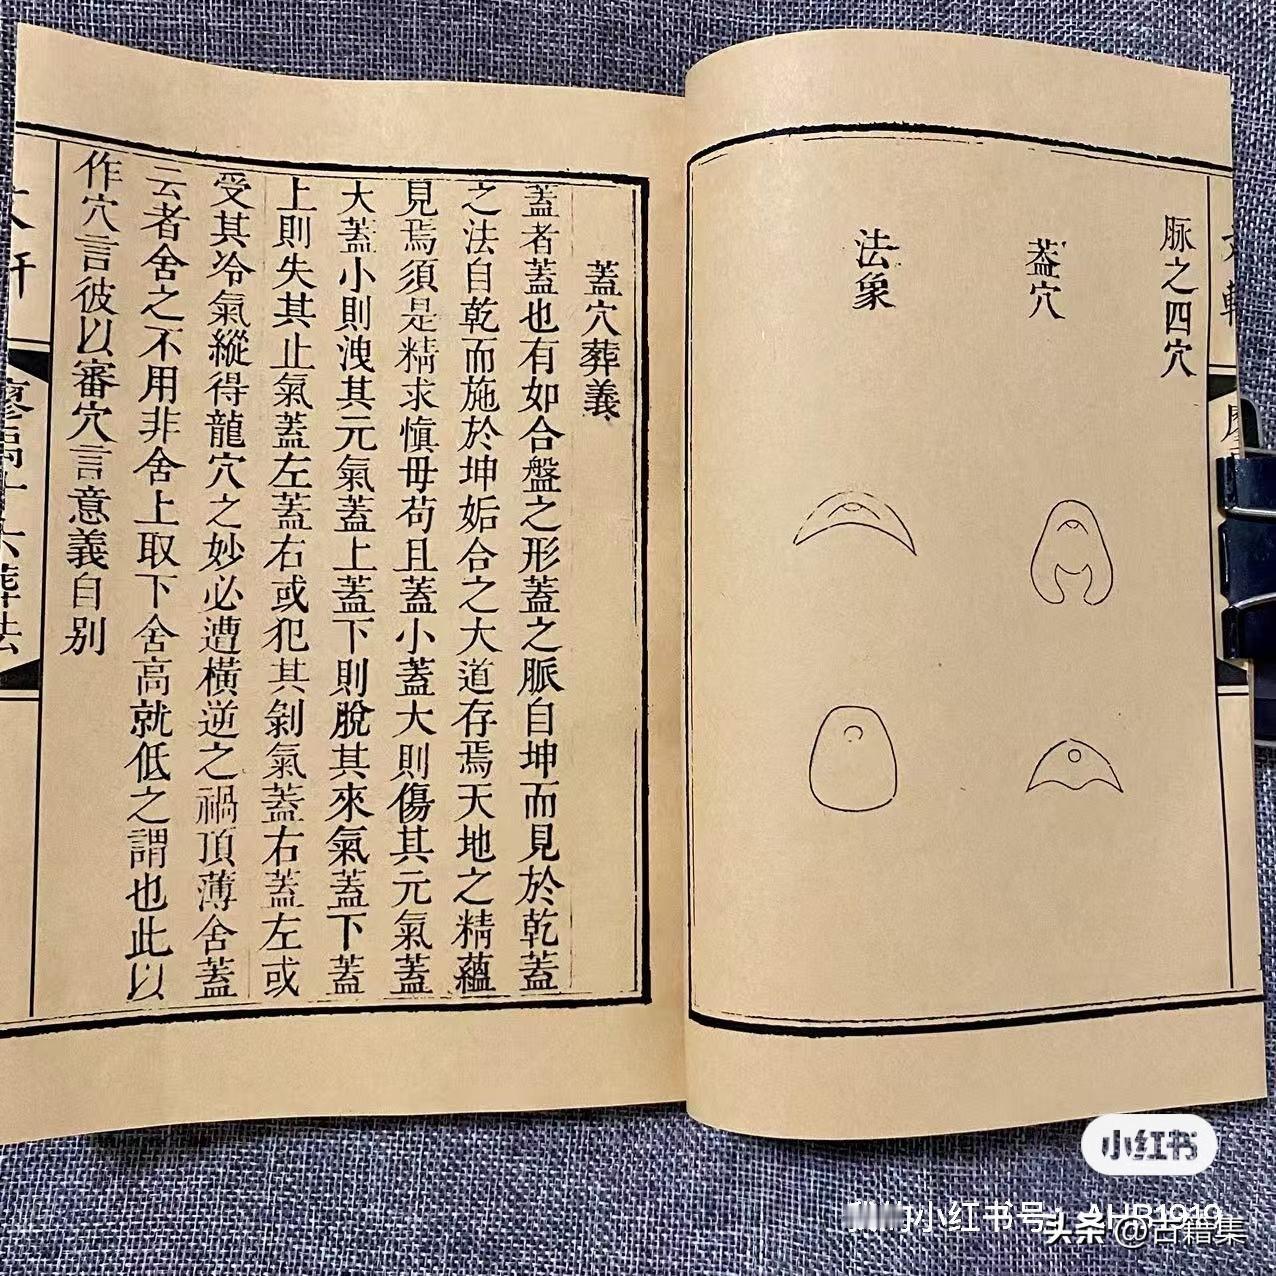 脉之四穴
葢穴
法象
蓋穴葬義
蓋者蓋也有如合盤之形蓋之脈自坤而見於乾蓋
之法自乾而施於坤姤合之大道存焉天地之精蘊
見焉須是精求慎毋苟且蓋小蓋大則傷其元氣蓋
大蓋小則洩其元氣蓋上蓋下則脫其來氣蓋下蓋
上則失其止氣蓋左蓋右或犯其剝氣蓋右蓋左或
受其冷氣縱得龍穴之妙必遭橫逆之禍頂薄舍蓋
云者舍之不用非舍上取下舍高就低之謂也此以
作穴言彼以審穴言意義自別
十六葬法
小红书
小红书号：AHB1919
头条@古籍集